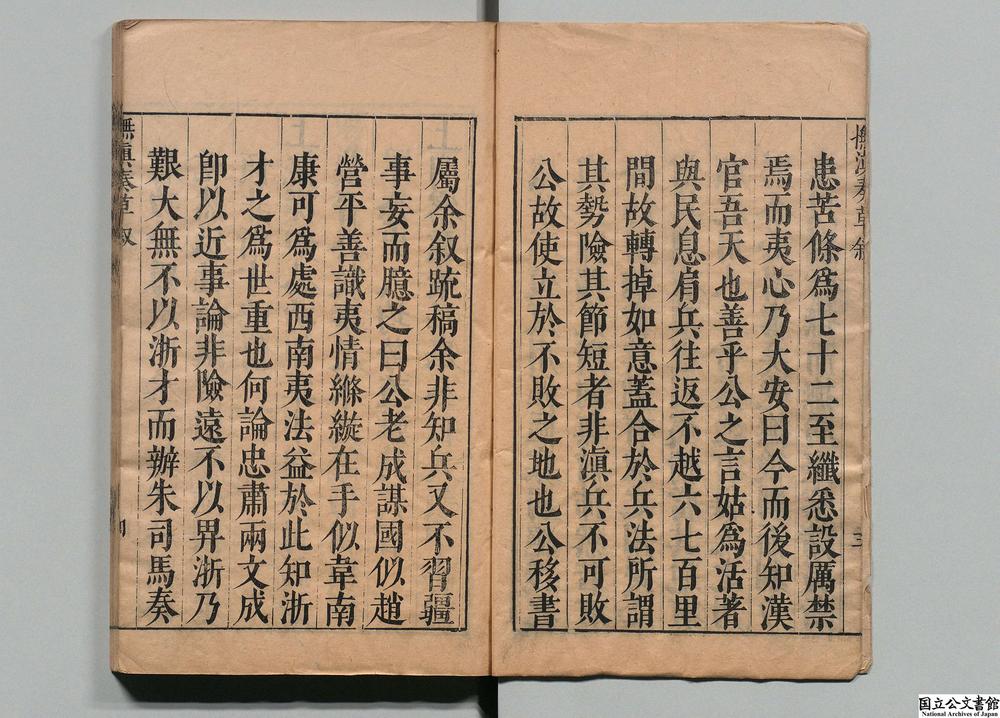 撫滇奏草 叙
患苦條爲七十二至纖悉設厲禁
焉而夷心乃大安曰今而後知漢
官吾天也善乎公之言姑爲活著
與民息肩兵往返不越六七百里
間故轉掉如意蓋合於兵法所謂
其勢險其節短者非滇兵不可敗
公故使立於不敗之地也公移書
三
屬余叙疏稿余非知兵又不習疆
事妄而臆之曰公老成謀國似趙
營平善識夷情縧縱在手似韋南
康可爲處西南夷法益於此知浙
才之爲世重也何論忠肅兩文成
卽以近事論非險遠不以畀浙乃
艱大無不以浙才而辦朱司馬奏
撫滇奏草 叙
国立公文書館
National Archives of Japan